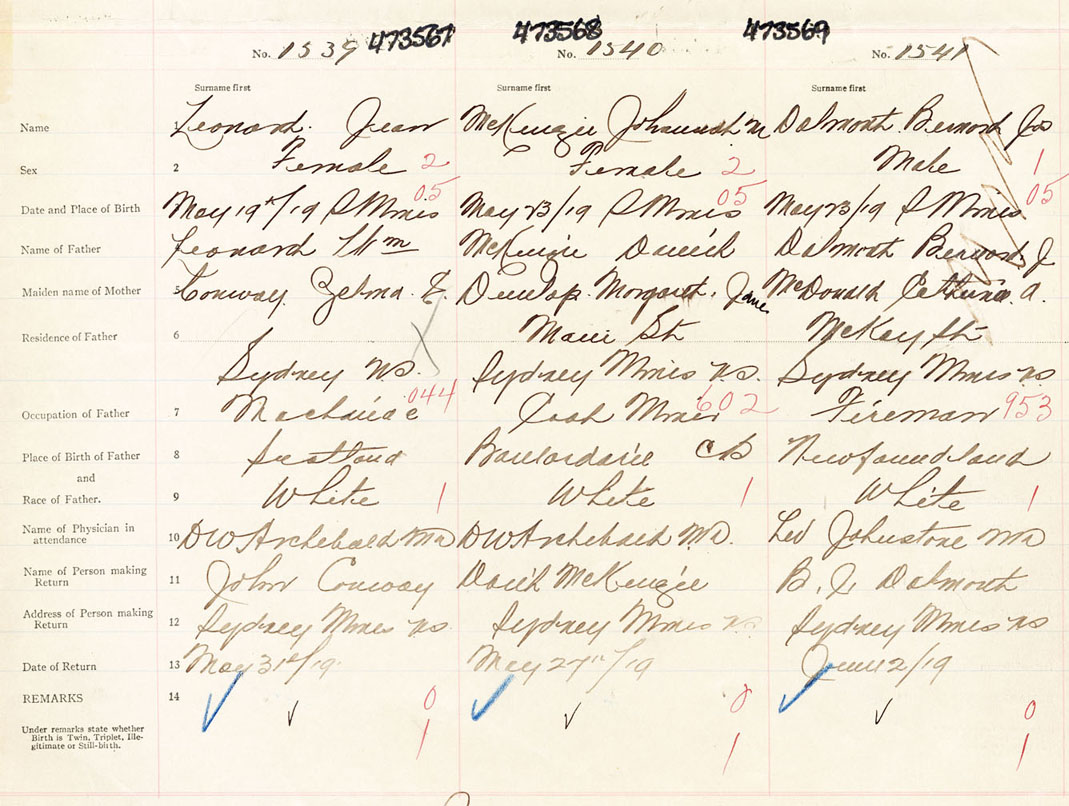 473567 473568 473569
No. 1539 No. 1540 No. 1541
Surname first Surname first Surname first
Name 1 Leonard. Jean McKenzie Johannah M Dalmont Bernard Jos
Sex 2 Female 2 Female 2 Male 1
05 05 05
Date and Place of Birth May 19th/19 S Mines May 23/19 S Mines May 23/19 S Mines
Name of Father Leonard Wm McKenzie David Dalmont Bernard J
Maiden name of Mother 5 Conway Zelma E Dunlap. Margaret. Jane McDonald a.
Residence of Father 6 Main St McKay St
Sydney NS. Sydney Mines N.S. Sydney Mines NS
044 602 953
Occupation of Father 7 Coal Miner Fireman
Place of Birth of Father 8 Scotland CB Newfoundland
and
Race of Father. 9 White 1 White 1 White 1
Name of Physician in
attendance 10 DW Archibald MD DW Archibald MD. Johnstone MD
Name of Person making
Return 11 John Conway David McKenzie B. J. Dalmont
Address of Person making
Return 12 Sydney Mines NS Sydney Mines NS Sydney Mines NS
Date of Return 13 May 31st/19. May 27th/19 June 2/19
REMARKS 14 0 0 0
Under remarks state whether
Birth is Twin, Triplet, Ille-
gitimate or Still-birth. 1 1 1